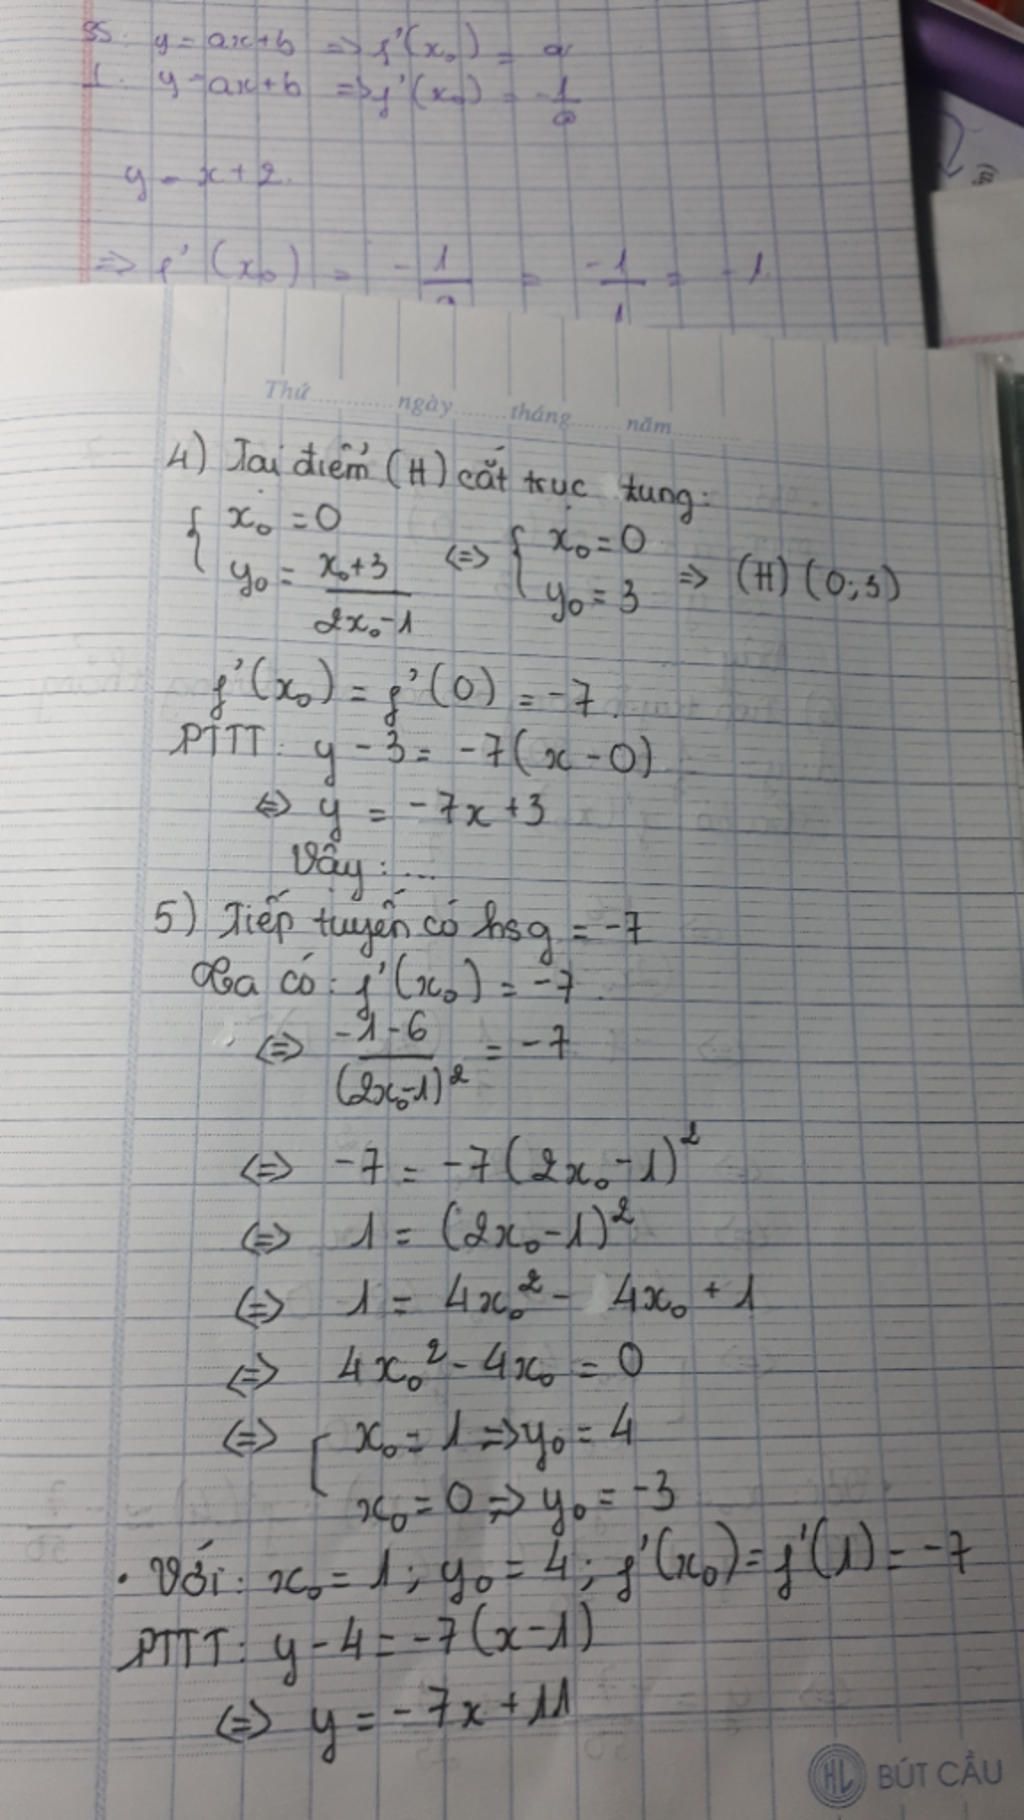 SS: y = ax+b => f'(x₀) = a
⊥: y = ax+b => f'(x₀) = -1/a
y = x+2.
=> f'(x₀) = -1/a = -1/1 = -1
Thứ ngày tháng năm
4) Tại điểm (H) cắt trục tung:
{ x₀ = 0
y₀ = (x₀+3)/(2x₀-1) <=> { x₀ = 0
y₀ = 3 => (H) (0;3)
f'(x₀) = f'(0) = -7.
PTTT: y - 3 = -7(x - 0)
<=> y = -7x + 3
Vậy: ...
5) Tiếp tuyến có hsg = -7
Ta có: f'(x₀) = -7.
<=> (-1-6)/(2x₀-1)² = -7
<=> -7 = -7(2x₀-1)²
<=> 1 = (2x₀-1)²
<=> 1 = 4x₀² - 4x₀ + 1
<=> 4x₀² - 4x₀ = 0
<=> [ x₀ = 1 => y₀ = 4
x₀ = 0 => y₀ = -3
• Với: x₀ = 1; y₀ = 4; f'(x₀) = f'(1) = -7
PTTT: y - 4 = -7(x-1)
<=> y = -7x + 11
HL BÚT CẦU